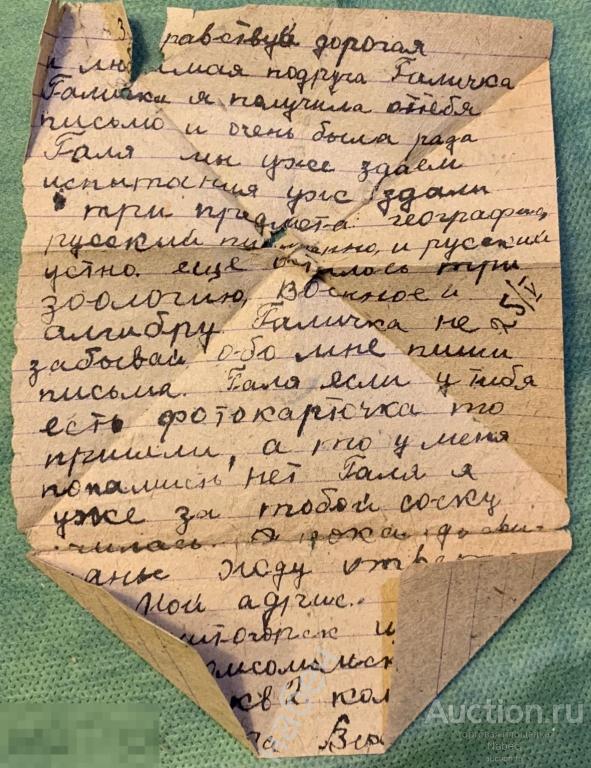 Здравствуй дорогая
и любимая подруга Галичка
Галичка я получила от тебя
письмо и очень была рада
Галя мы уже здаем
испытания уже здали
три предмета: географию,
русский письменно, и русский
устно. еще осталось три
зоологию, военное и
алгибру Галичка не
25/IV
забывай обо мне пиши
письма. Галя если у тибя
есть фотокарточка то
пришли, а то у меня
нет Галя я
уже за тобой соску
чилась. А пока до сви-
анье жду ответ
Мой адрис.
итогорск
мсомольск
кв 2 ком
Auction.ru
торговая площадка
Nabec
auction.ru